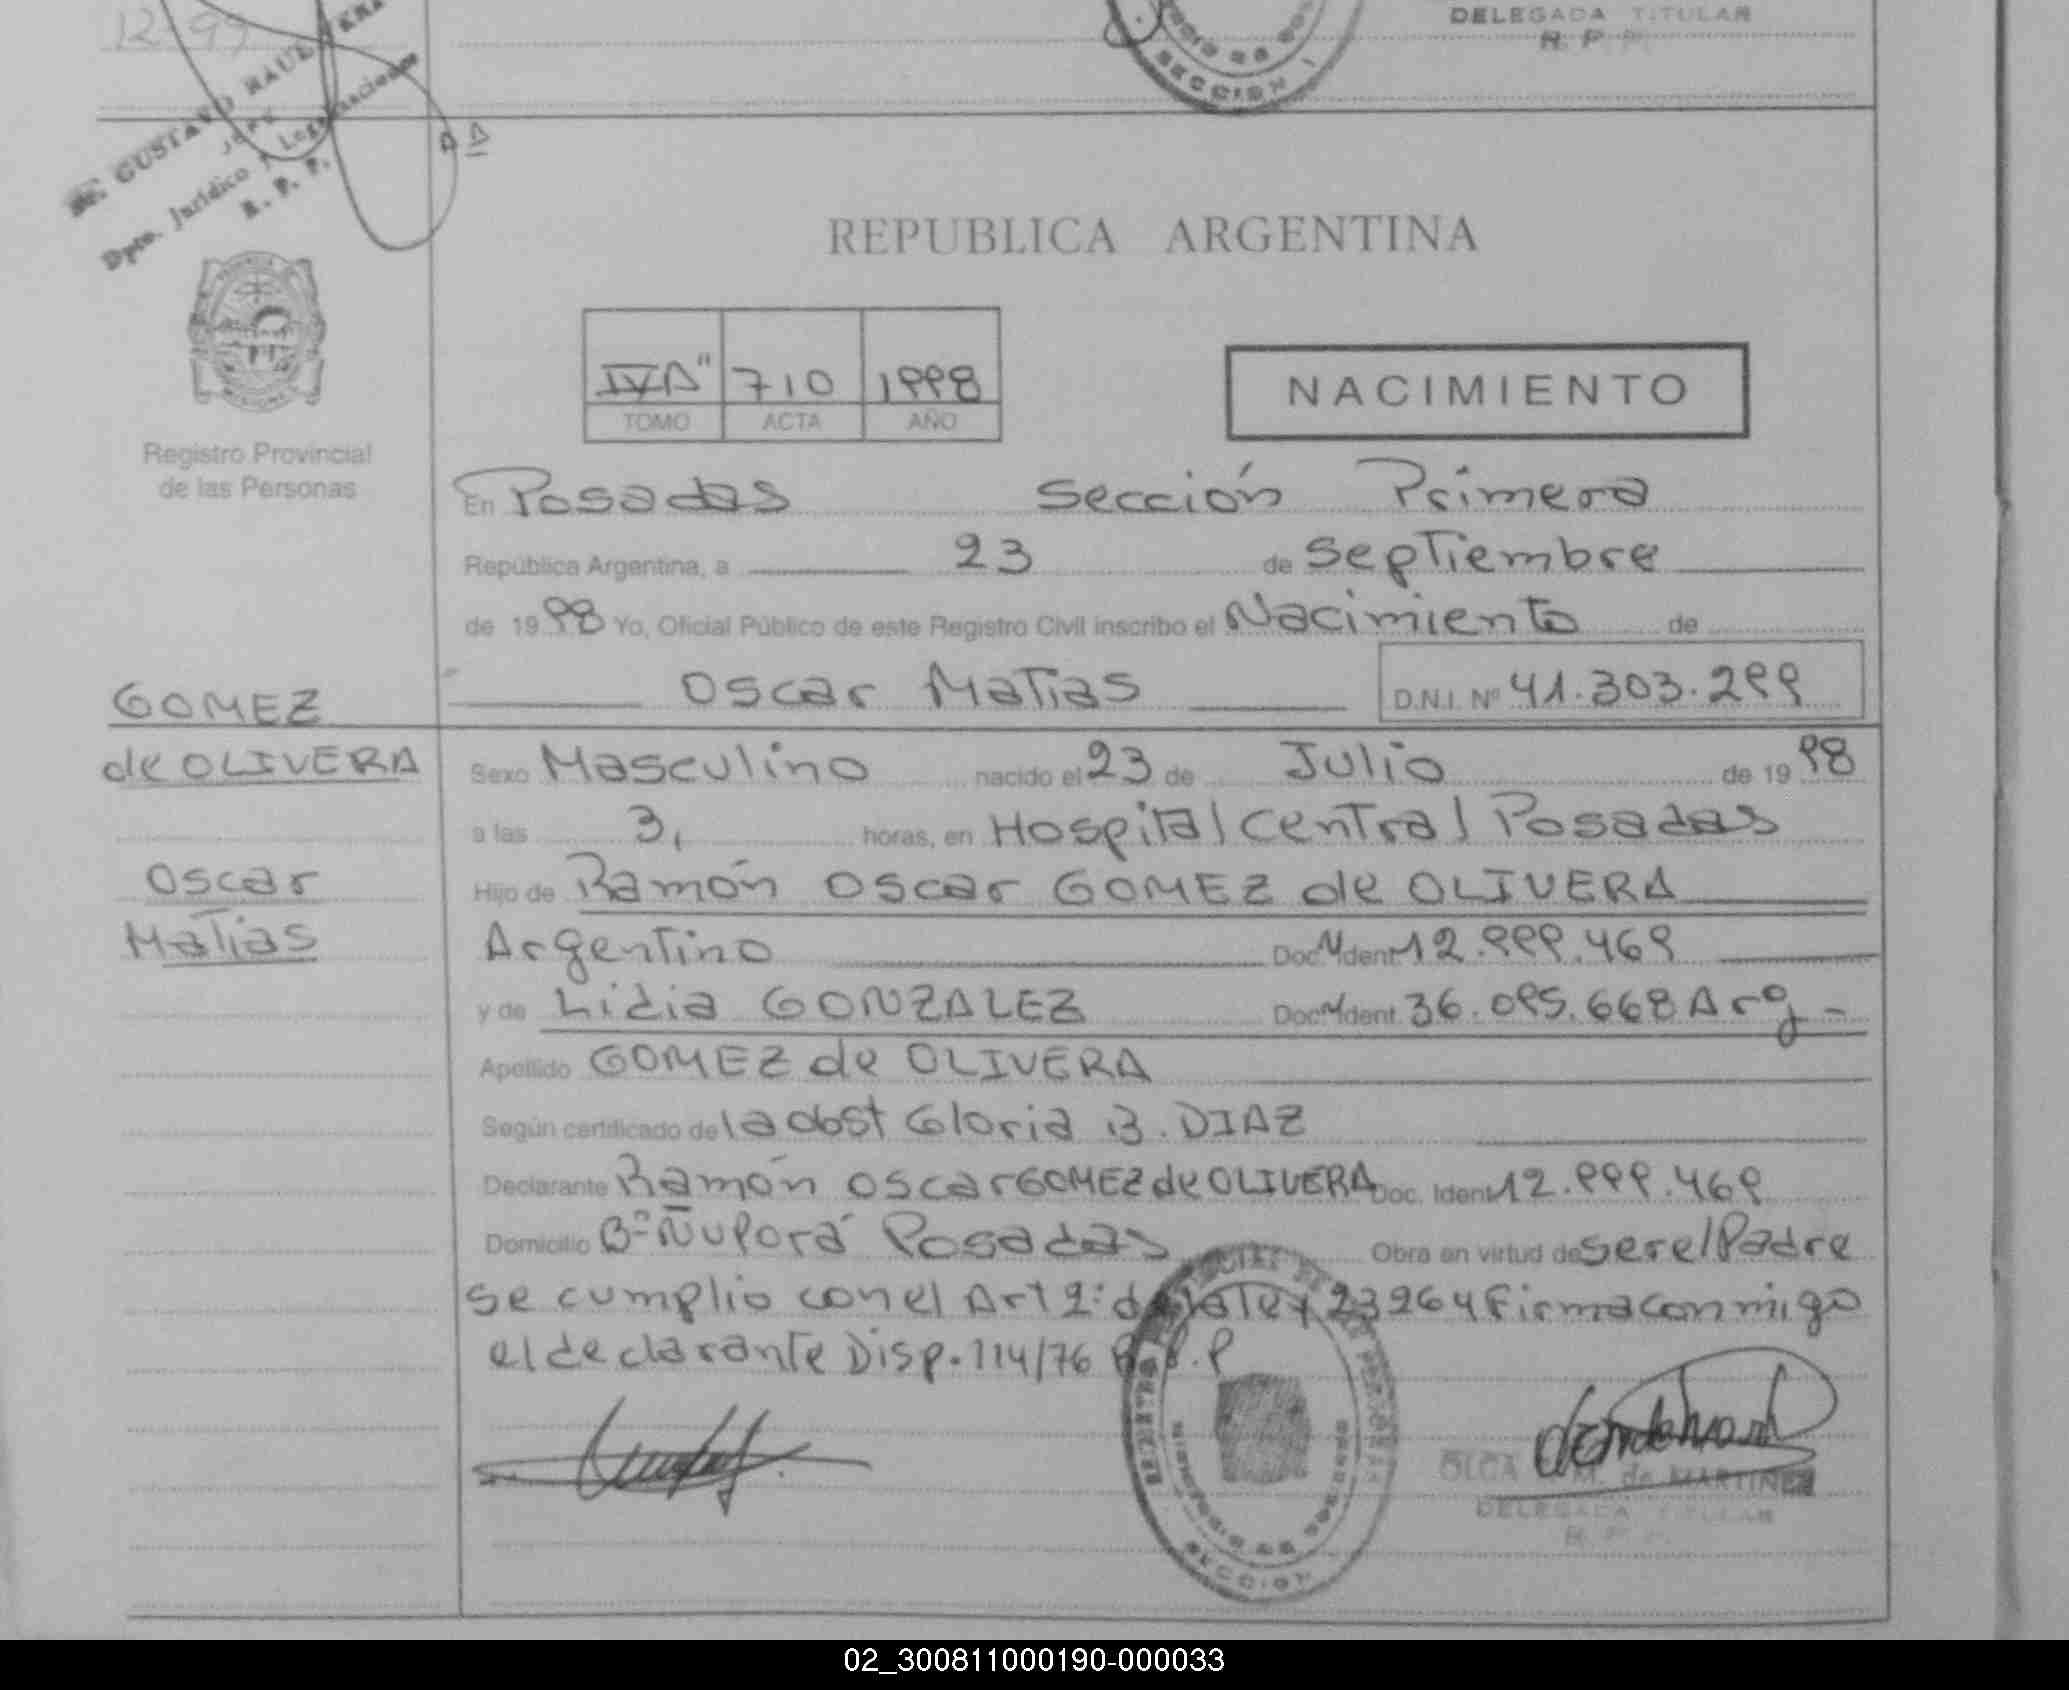 12 99
DELEGADA TITULAR
R. P. P.
SECCION 1
Dr. GUSTAVO RAUL
Jefe
Dpto. Jurídico y Legalizaciones
R. P. P.
REPUBLICA ARGENTINA
IV "A" 710 1998
TOMO ACTA AÑO
NACIMIENTO
Registro Provincial
de las Personas
En Posadas Sección Primera
República Argentina, a 23 de Septiembre
de 1998 Yo, Oficial Público de este Registro Civil inscribo el Nacimiento de
Oscar Matias D.N.I. Nº 41.303.299
GOMEZ
de OLIVERA
Oscar
Matias
Sexo Masculino nacido el 23 de Julio de 1998
a las 3, horas, en Hospital Central Posadas
Hijo de Ramón Oscar GOMEZ de OLIVERA
Argentino Doc. Ident. 12.999.469
y de Lidia GONZALEZ Doc. Ident. 36.095.668 Arg -
Apellido GOMEZ de OLIVERA
Según certificado de la obst Gloria B. DIAZ
Declarante Ramón Oscar GOMEZ de OLIVERA Doc. Ident. 12.999.469
Domicilio Bº Ñu Porá Posadas Obra en virtud de ser el Padre
se cumplio con el Art 2º de la ley 23264 firma conmigo
el declarante Disp. 114/76 R.P.P
OLGA M. de MARTINEZ
DELEGADA TITULAR
R. P. P.
SECCION
02_300811000190-000033